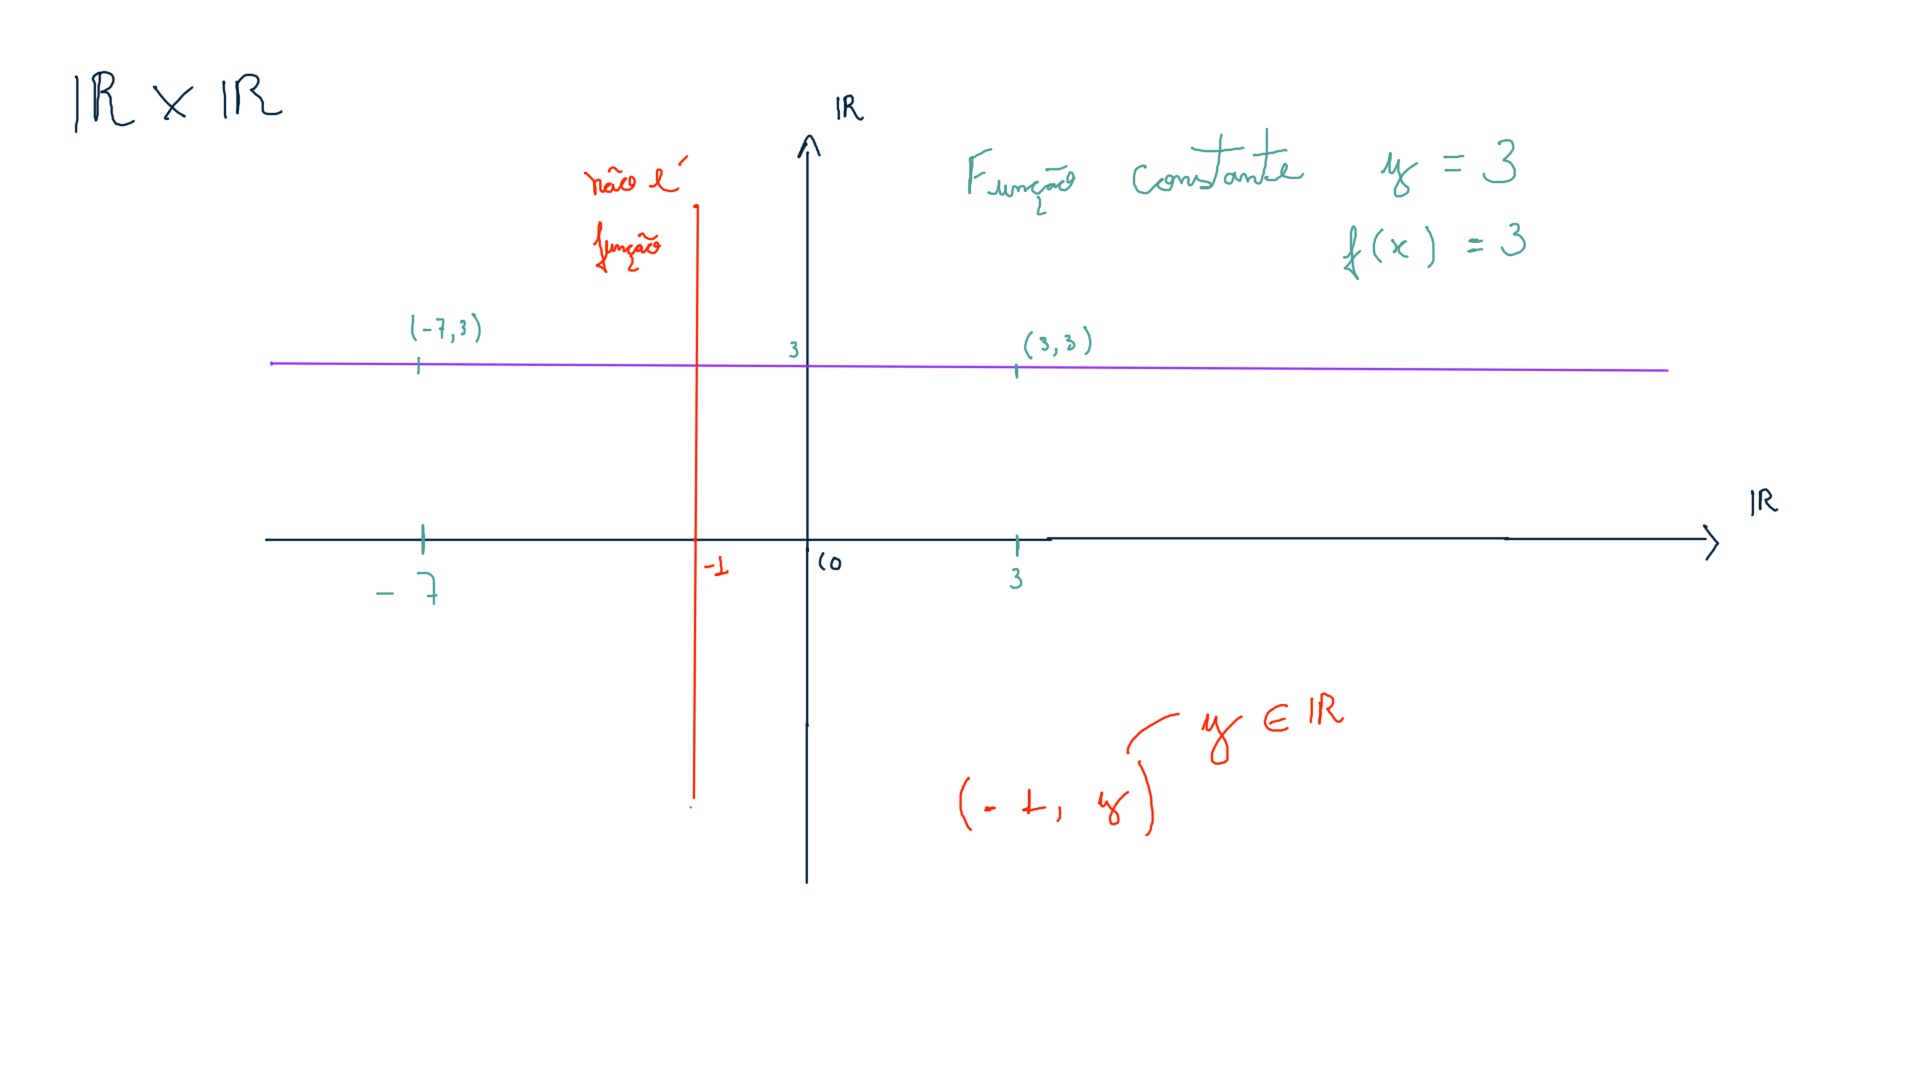 ℝ × ℝ
ℝ
não é
função
Função constante y = 3
f(x) = 3
(-7,3)
3
(3,3)
ℝ
-7
-1
(0
3
y ∈ ℝ
(-1, y)